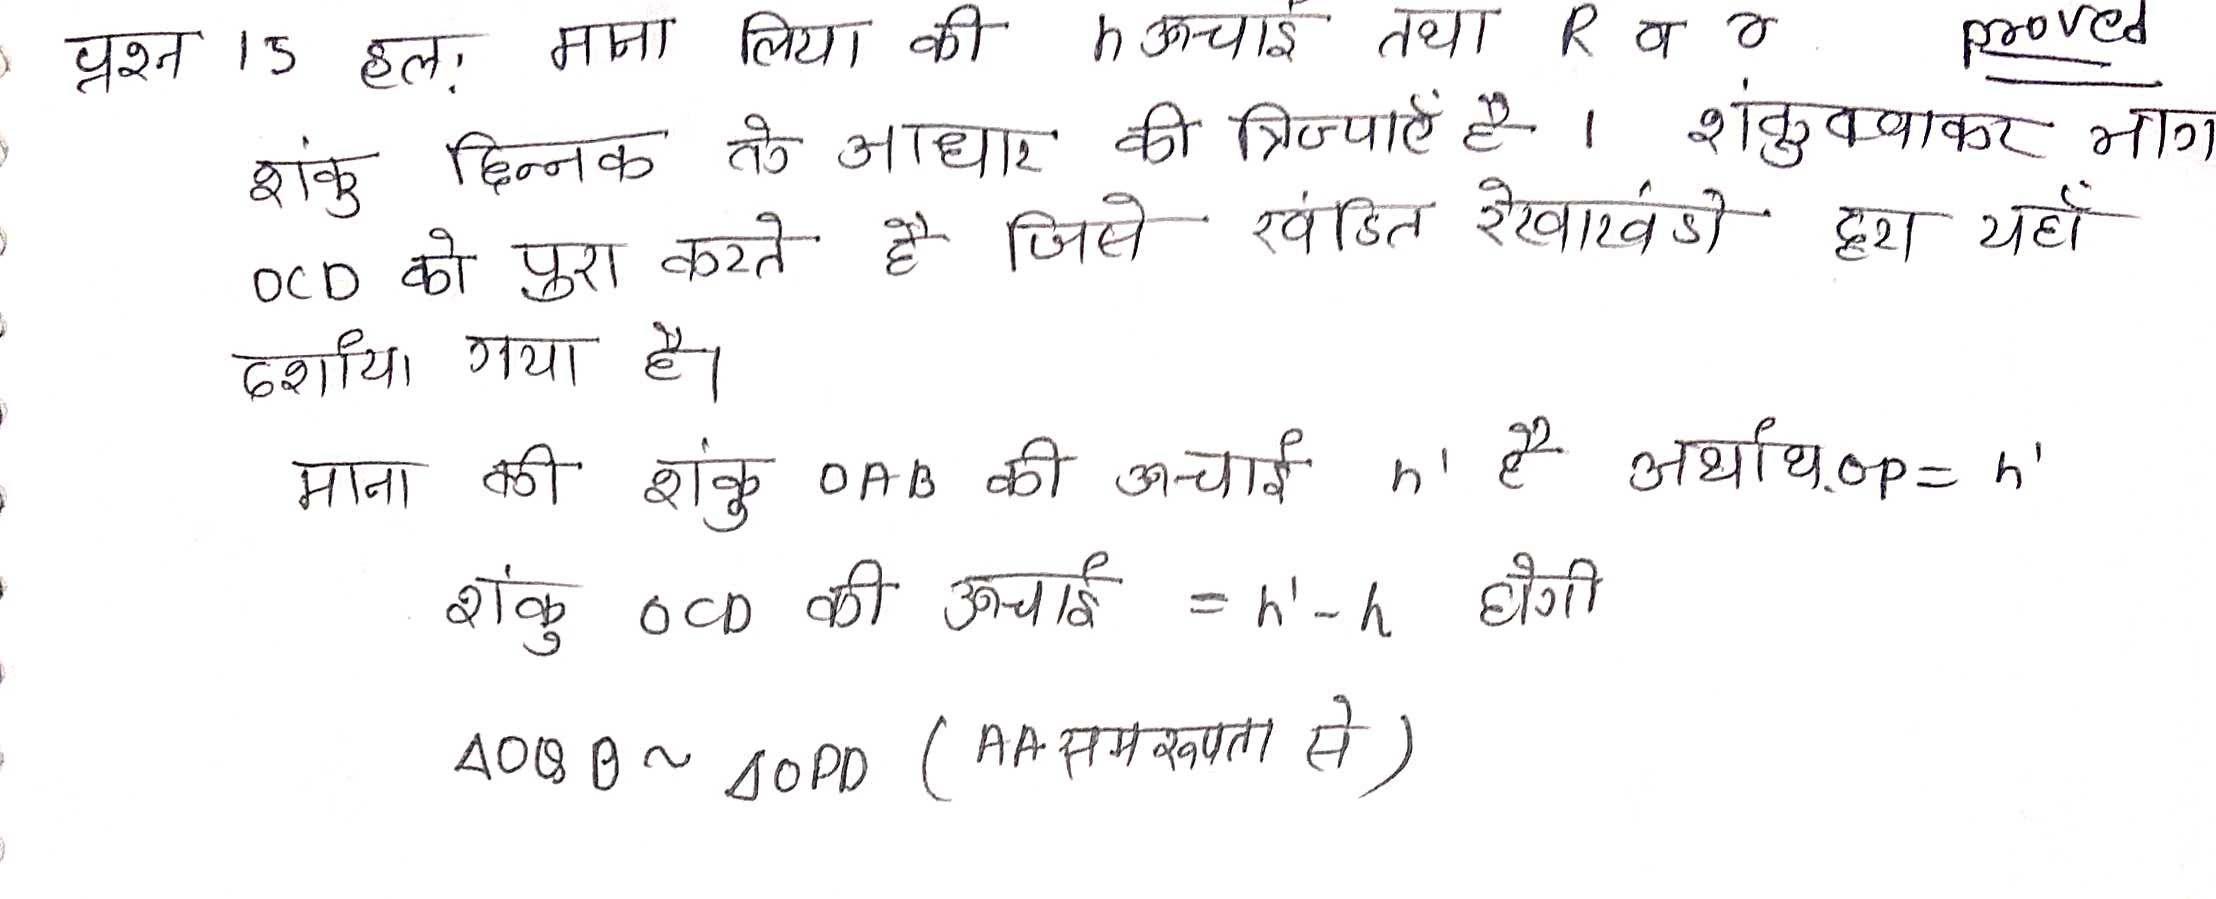 प्रश्न 15 हल: माना लिया की h ऊचाई तथा R व r proved
शंकु छिन्नक के आधार की त्रिज्याएँ है । शंकु क्वाकर भाग
OCD को पुरा करते है जिसे खंडित रेखाखंडो द्वरा यहाँ
दर्शाया गया है।
माना की शंकु OAB की ऊचाई h' है अर्थाथ. OP = h'
शंकु OCD की ऊचाई = h' - h होगी
ΔOQB ~ ΔOPD (AA समरूपता से)